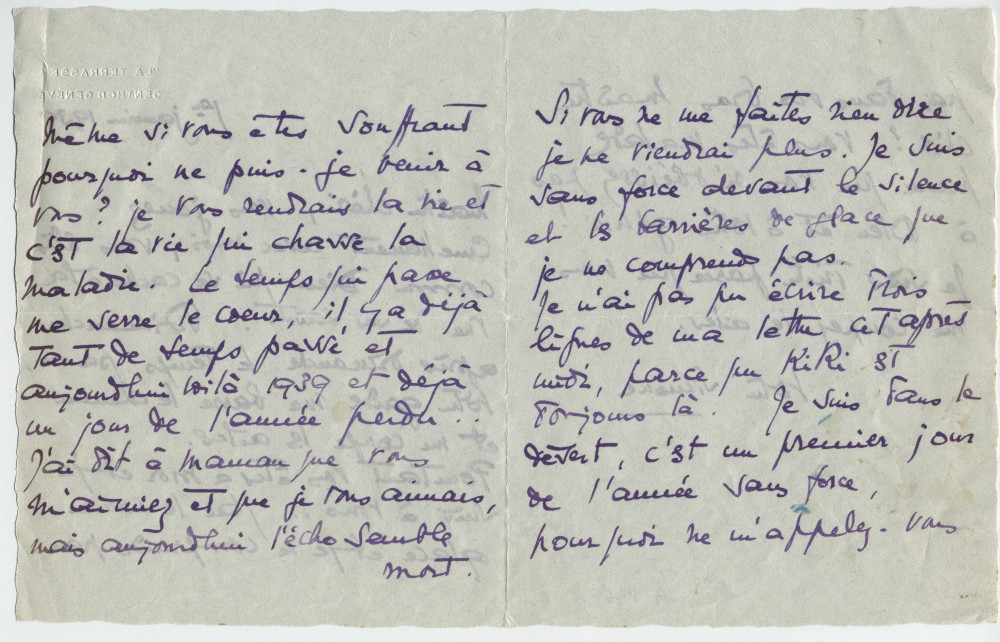 même si vous êtes souffrant
pourquoi ne puis-je venir à
vous? je vous rendrais la vie et
c'est la vie qui chasse la
maladie. Le temps qui passe
me serre le coeur, il y a déjà
tant de temps passé et
aujourdhui voilà 1939 et déjà
un jour de l'année perdu..
J'ai dit à maman que vous
m'aimiez et que je vous aimais,
mais aujourdhui l'écho semble
mort.
Si vous ne me faites rien dire
je ne viendrai plus. Je suis
sans force devant le silence
et les barrières de glace que
je ne comprends pas.
Je n'ai pas pu écrire trois
lignes de ma lettre cet après
midi, parce que KiKi est
toujours là. Je suis dans le
désert, c'est un premier jour
de l'année sans force,
pourquoi ne m'appelez-vous
"LA TERRASSE"
GENTHOD GENÈVE